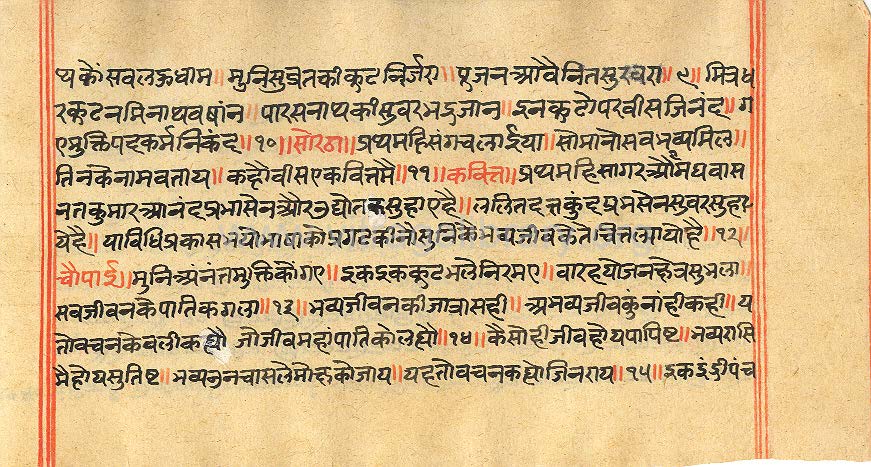 थकौं सवलऊधाम॥ मुनिसुव्रतकीकुटनिर्जरा॥ पुजनआवैनितसुरषरा॥ ९॥ मित्रध
रकुटनमिनाथवषांन॥ पारसनाथकीसुवरभद्रजान॥ इनकुटोपरवीसजिनंद॥ ग
एमुक्तिपदकर्मनिकंद॥ १०॥ सोरठा॥ प्रथमहिसंगचलाईया॥ सोमानोसवभव्यमिल॥
तिनकेनामवताय॥ कहौवीसएकवित्तमै॥ ११॥ कवित्त॥ प्रथमहिसागरऔमघवास
नतकुमारआनंदप्रभासेनऔरउद्योतकसुहाएहै॥ ललितदत्तकुंदप्रभसेनसुवरसुहा
येहै॥ याविधिप्रकासभयोभाषाकोप्रगटकीनोसुनिकेभव्यजीवकेतेचितलायोहै॥ १२॥
चौपाई॥ मुनिअनंतमुक्तिकौंगए॥ इकइककुटभलेनिरमए॥ वारहयोजनक्षेत्रसुभला॥
सवजीवनकैपातिकगला॥ १३॥ भव्यजीवनकीजात्रासही॥ अभव्यजीवकुंनांहीकही॥ य
तोवचनकेवलीकह्यौ जोजीवमहांपातिकोलह्यौ॥ १४॥ कैसोहीजीवहोयपापिष्ट॥ भव्यरासि
मैहोयसुतिष्ट॥ भव्यउनचासलेमोक्षकोजाय॥ यहतोवचनकह्योजिनराय॥ १५॥ इकइंद्रीपंच